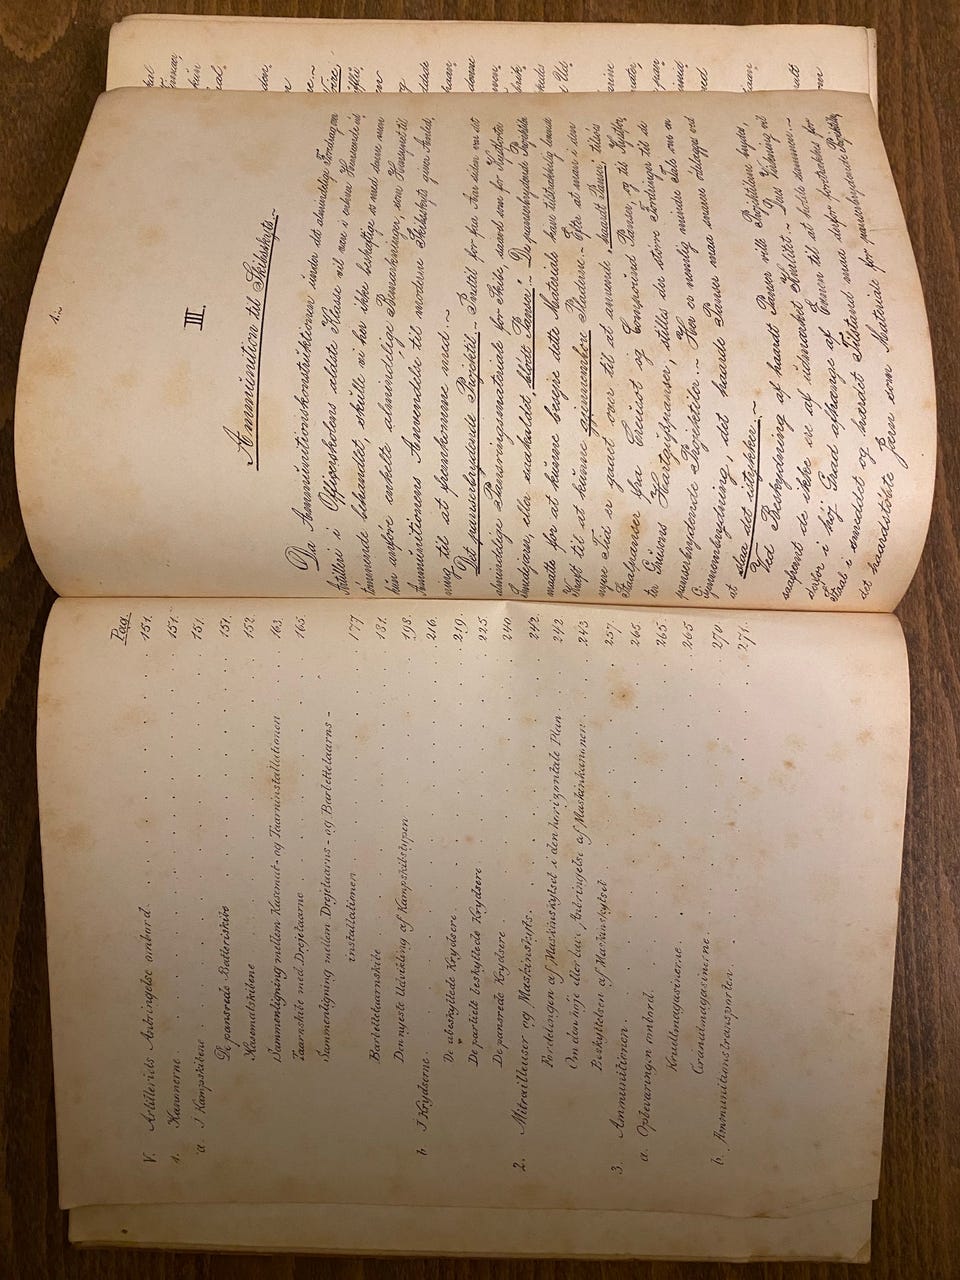 Pag.
V. Artilleriets Anbringelse ombord. 151.
1. Kanonerne. 151.
a. I Kampskibene 151.
De pansrede Batteriskibe 151.
Kasematskibene 152.
Sammenligning mellem Kasemat- og Taarninstallationen 163.
Taarnskibe med Drejetaarne 165.
Sammenligning mellem Drejetaarns- og Barbettetaarns-
installationen 177.
Barbettetaarnskibe 181.
Den nyeste Udvikling af Kampskibstypen 198.
b I Krydserne. 216.
De ubeskyttede Krydsere 219.
De partielt beskyttede Krydsere 225.
De pansrede Krydsere 240.
2. Mitrailleuser og Maskinskyts. 242.
Fordelingen af Maskinskytset i den horizontale Plan 242.
Om den høje eller lave Anbringelse af Maskinkanonen 243.
Beskyttelsen af Maskinskytset 257.
3. Ammunitionen. 265.
a. Opbevaringen ombord. 265.
Krudtmagasinerne. 265
Granatmagasinerne. 270.
b. Ammunitionstransporten. 271.
III.
Ammunition til Skibskyts.~
Da Ammunitionskonstruktionen under det almindelige Foredrag om
Artilleri i Officersskolens ældste Klasse vil være i enhver Henseende ud-
tømmende behandlet, skulle vi her ikke beskæftige os med den men
kun anføre enkelte almindelige Bemærkninger, som Hensynet til
Ammunitionens Anvendelse til moderne Skibsskyts giver Anled-
ning til at fremkomme med.~
Det panserbrydende Projektil.~ Indtil for faa Aar siden var det
almindelige Pansringsmateriale for Skibe, saavel som for Kystforter
Smedejærn, eller saakaldet, blødt Panser.~ De panserbrydende Projektiler
maatte for at kunne besejre dette Materiale have tilstrækkelig levende
Kraft til at kunne gjennembore Pladerne.~ Efter at man i den
nyere Tid er gaaet over til at anvende, haardt Panser, tildels
Staalpanser fra Creusot og Compound Panser, og til Kystfor-
ter Grüsons Haartgüspanser, stilles der større Fordringer til de
panserbrydende Projektiler.~ Her er nemlig mindre Tale om en
Gjennembrydning, det haarde Panser maa snarere ødelægges ved
at slaa det itstykker.~
Ved Beskydning af haardt Panser ville Projektilerne brydes,
saafremt de ikke ere af udmærket Kvalitet.~ Deres Virkning vil
derfor i høj Grad afhænge af Evnen til at holde sammen.~
Staal i smeddet og hærdet Tilstand maa derfor foretrækkes for
det haardstøbte Jærn som Materiale for panserbrydende Projektiler,